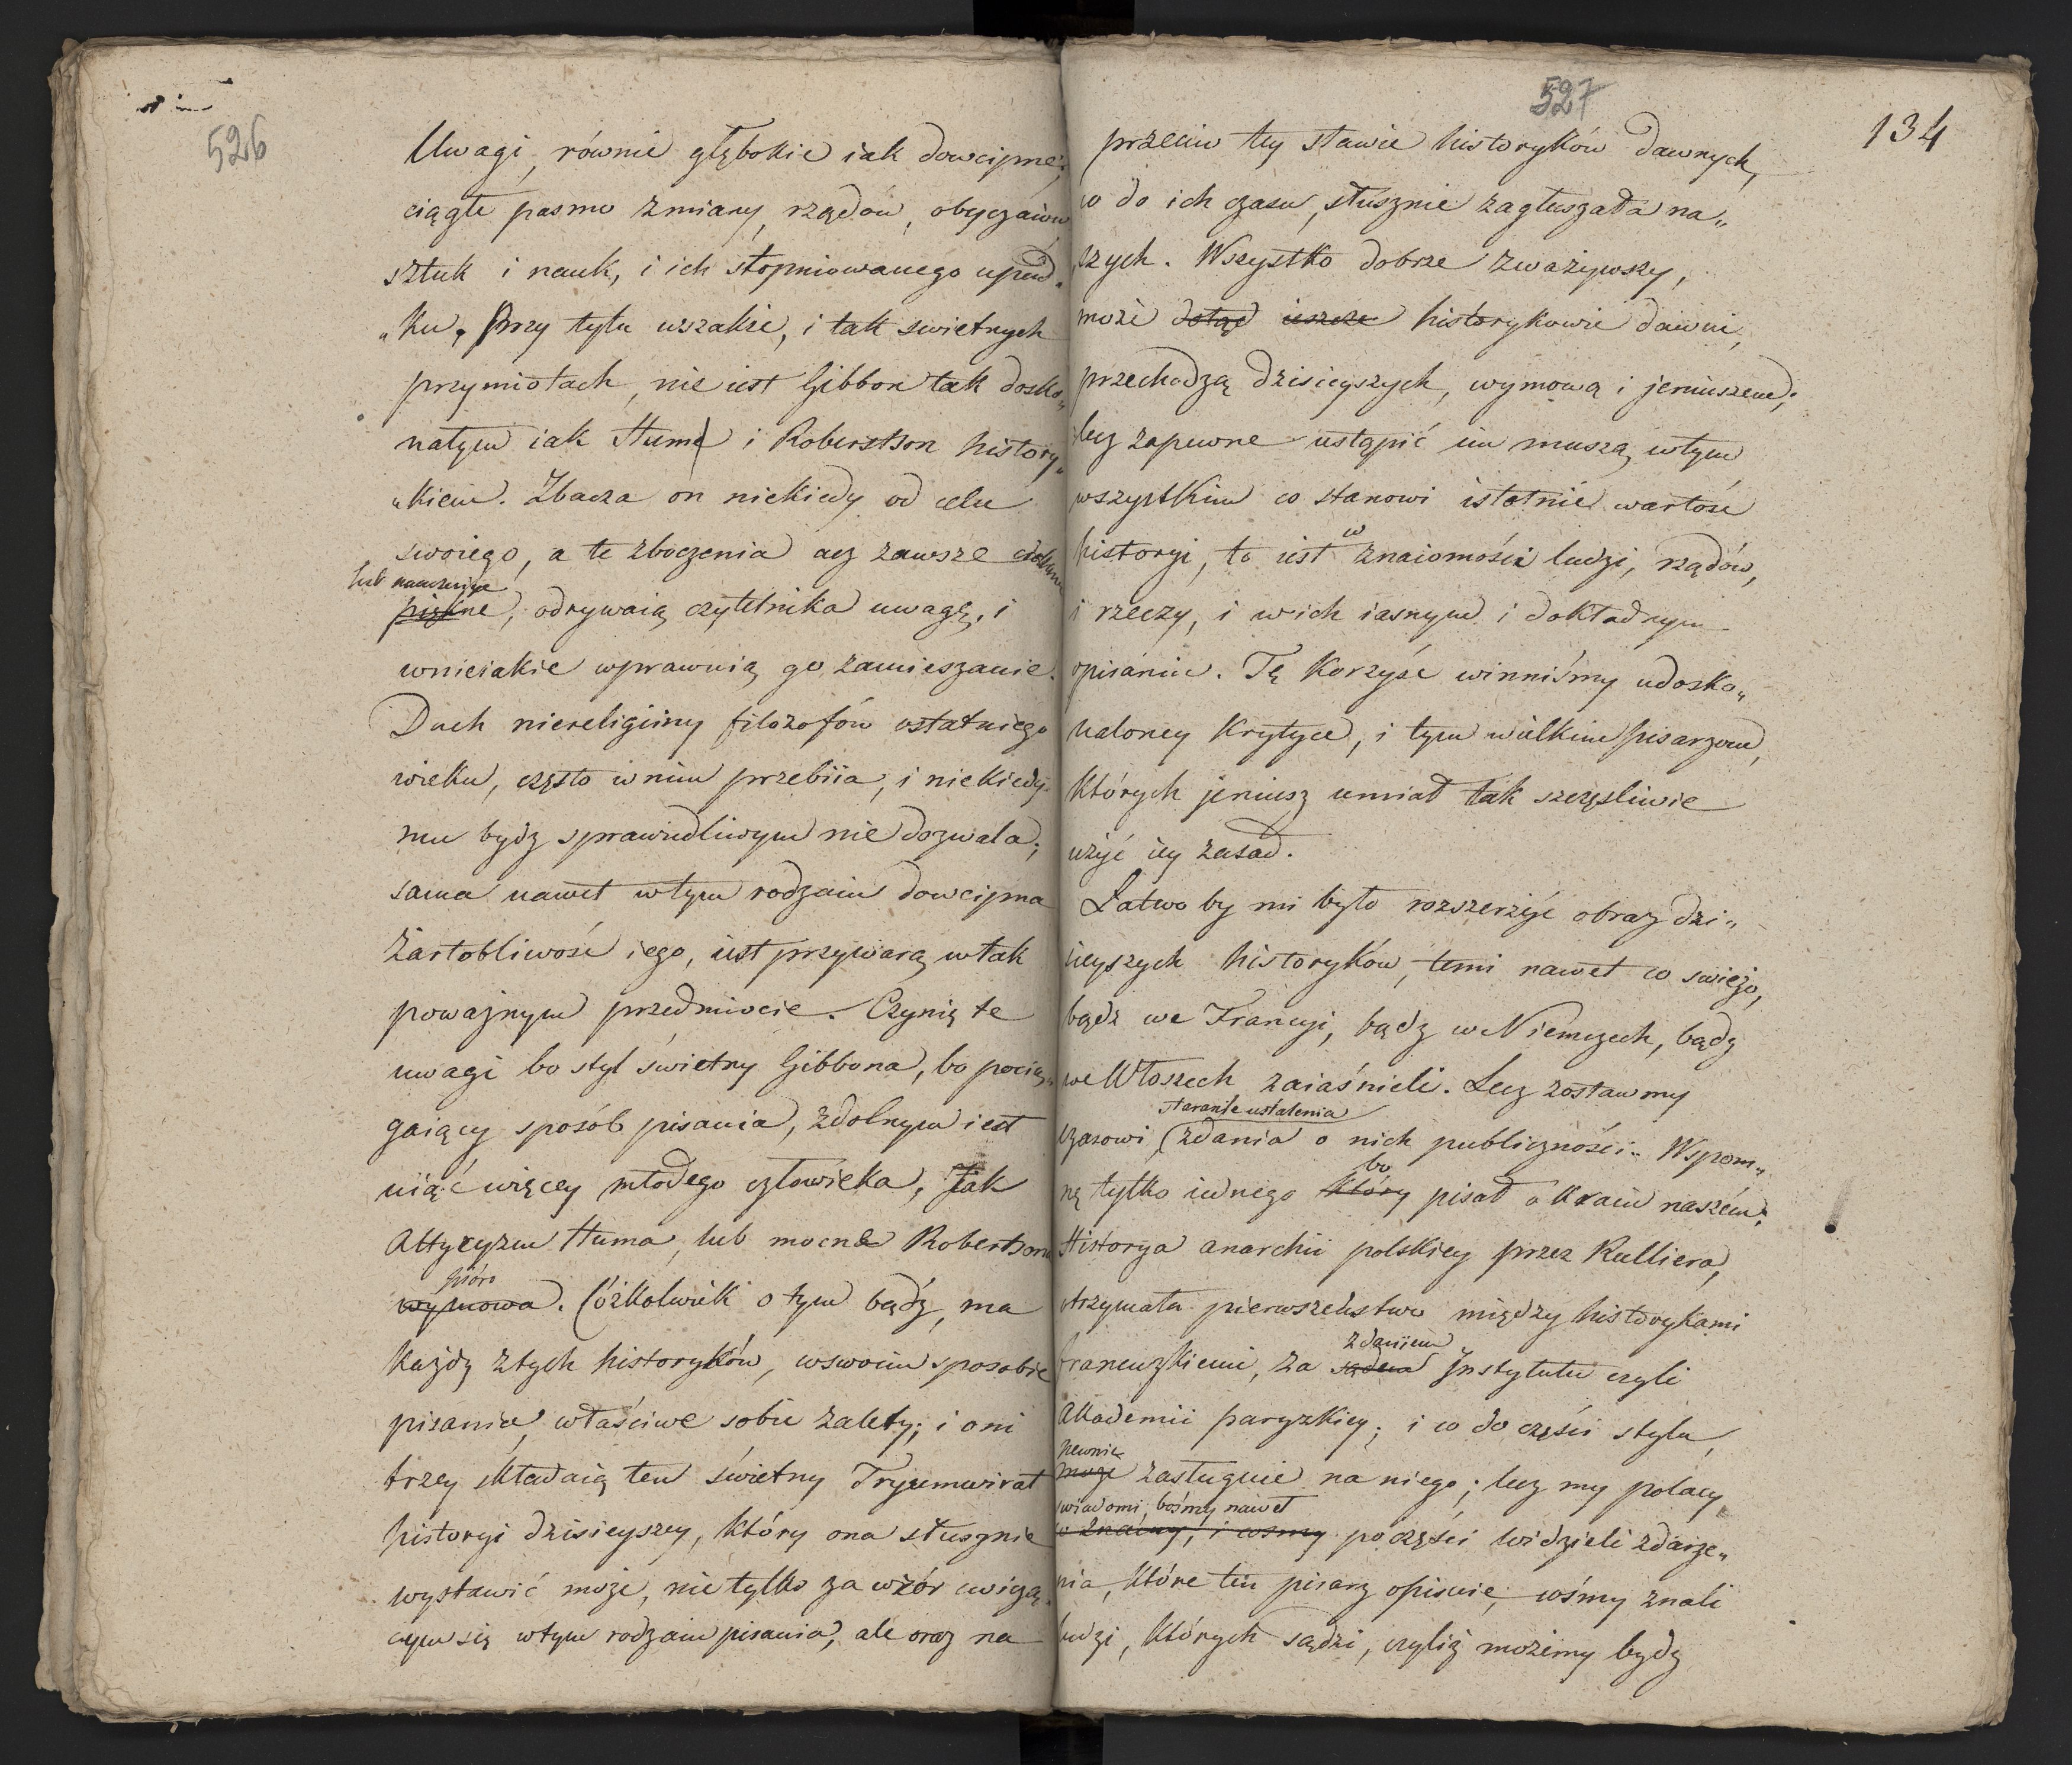 526
Uwagi, równie głębokie iak dowcipne;
ciągłe pasmo zmiany, rządów, obyczaiów,
sztuk i nauk, i ich stopniowanego upad„
„ku. Przy tylu wszakże, i tak swietnych
przymiotach, nie iest Gibbon tak dosko„
nałym iak Hume i Roberstson history„
„kiem. Zbacza on niekiedy od celu
swoiego, a te zboczenia acz zawsze ciekawe
lub nauczaiące
piękne, odrywaią czytelnika uwagę, i
wnieiakie wprawuią go zamieszanie.
Duch niereligiiny filozofów ostatniego
wieku, często wnim przebiia, i niekiedy
mu bydz sprawiedliwym nie dozwala;
sama nawet wtym rodzaiu dowcipna
żartobliwość iego, iest przywarą wtak
poważnym przedmiocie. Czynię te
uwagi bo styl świetny Gibbona, bo pocią„
gaiący sposób pisania, zdolnym iest
uiąć więcey młodego człowieka, Jak
Attycyzm Huma, lub mocne Robertsona
pióro
wymowa. Cóżkolwiek o tym bądź, ma
każdy ztych historyków, wswoim sposobie
pisania, właściwe sobie zalety; i oni
trzey składaią ten świetny Tryumwirat
historyi dzisieyszey, który ona słusznie
wystawić może, nie tylko za wzór cwiczą„
cym się wtym rodzaiu pisania, ale oraz na
527
134
przeciw tey sławie historyków dawnych,
co do ich czasu, słusznie zagłuszała na„
szych. Wszystko dobrze zważywszy,
może dotąd ieszcze historykowie dawni,
przechodzą dzisieyszych, wymową i jeniuszem;
lecz zapewne ustąpić im muszą wtym
wszystkim co stanowi istotnie wartość
w
historyi, to iest znaiomości ludzi, rządów,
i rzeczy, i w ich iasnym i dokładnym
opisaniu. Tę korzyść winniśmy udosko„
naloney krytyce, i tym wielkim pisarzom,
których jeniusz umiał tak szczęsliwie
użyć iey zasad.
Łatwo by mi było rozszerzyć obraz dzi„
sieyszych historyków, temi nawet co swieżo,
bądz we Francyi, bądz w Niemczech, bądz
we Włoszech zaiaśnieli. Lecz zostawmy
staranie ustalenia
czasowi zdania o nich publiczności. Wspom„
bo
nę tylko iednego który pisał o kraiu naszém.
Historya anarchii polskiey przez Rulliera,
otrzymała pierwszeństwo między historykami
zdaniem
francuzkiemi, za sądem Jnstytutu czyli
Akademii paryzkiey; i co do części stylu,
pewnie
może zasługuie na niego; lecz my polacy
swiadomi, bośmy nawet
co znamy, i cosmy po części widzieli zdarze„
nia, które ten pisarz opisuie, cośmy znali
ludzi, których sądzi, czyliż możemy bydz